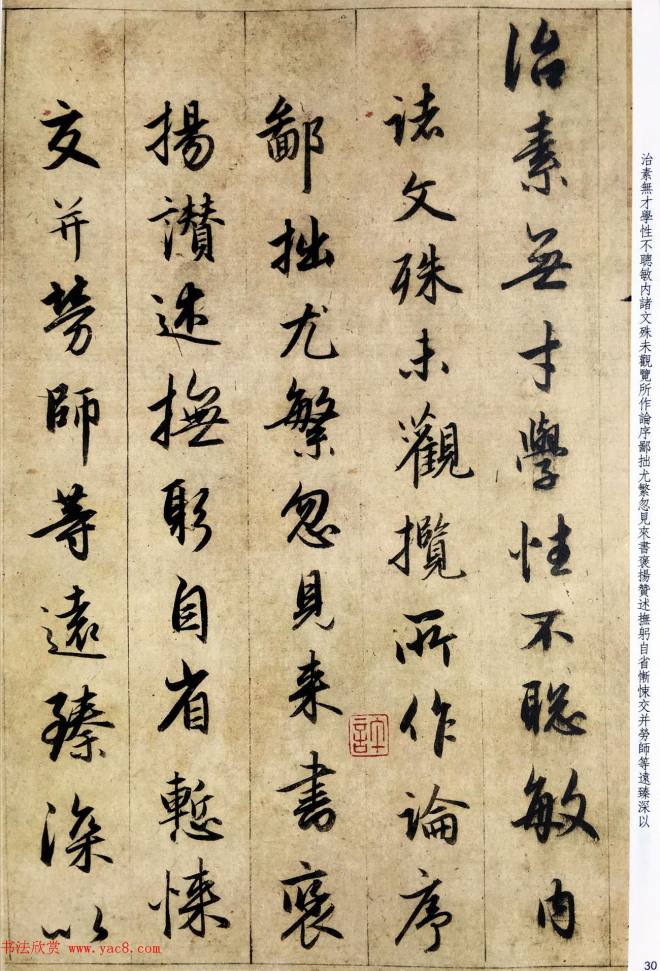 治素無才學性不聰敏内諸文殊未觀覽所作論序鄙拙尤繁忽見來書褒揚贊述撫躬自省慚悚交并勞師等遠臻深以
治素無才學性不聡敏内
諸文殊未觀攬所作論序
鄙拙尤繁忽見来書褒
揚讃述撫躬自省慙悚
交并勞師等遠臻深以
书法欣赏 www.yac8.com
30